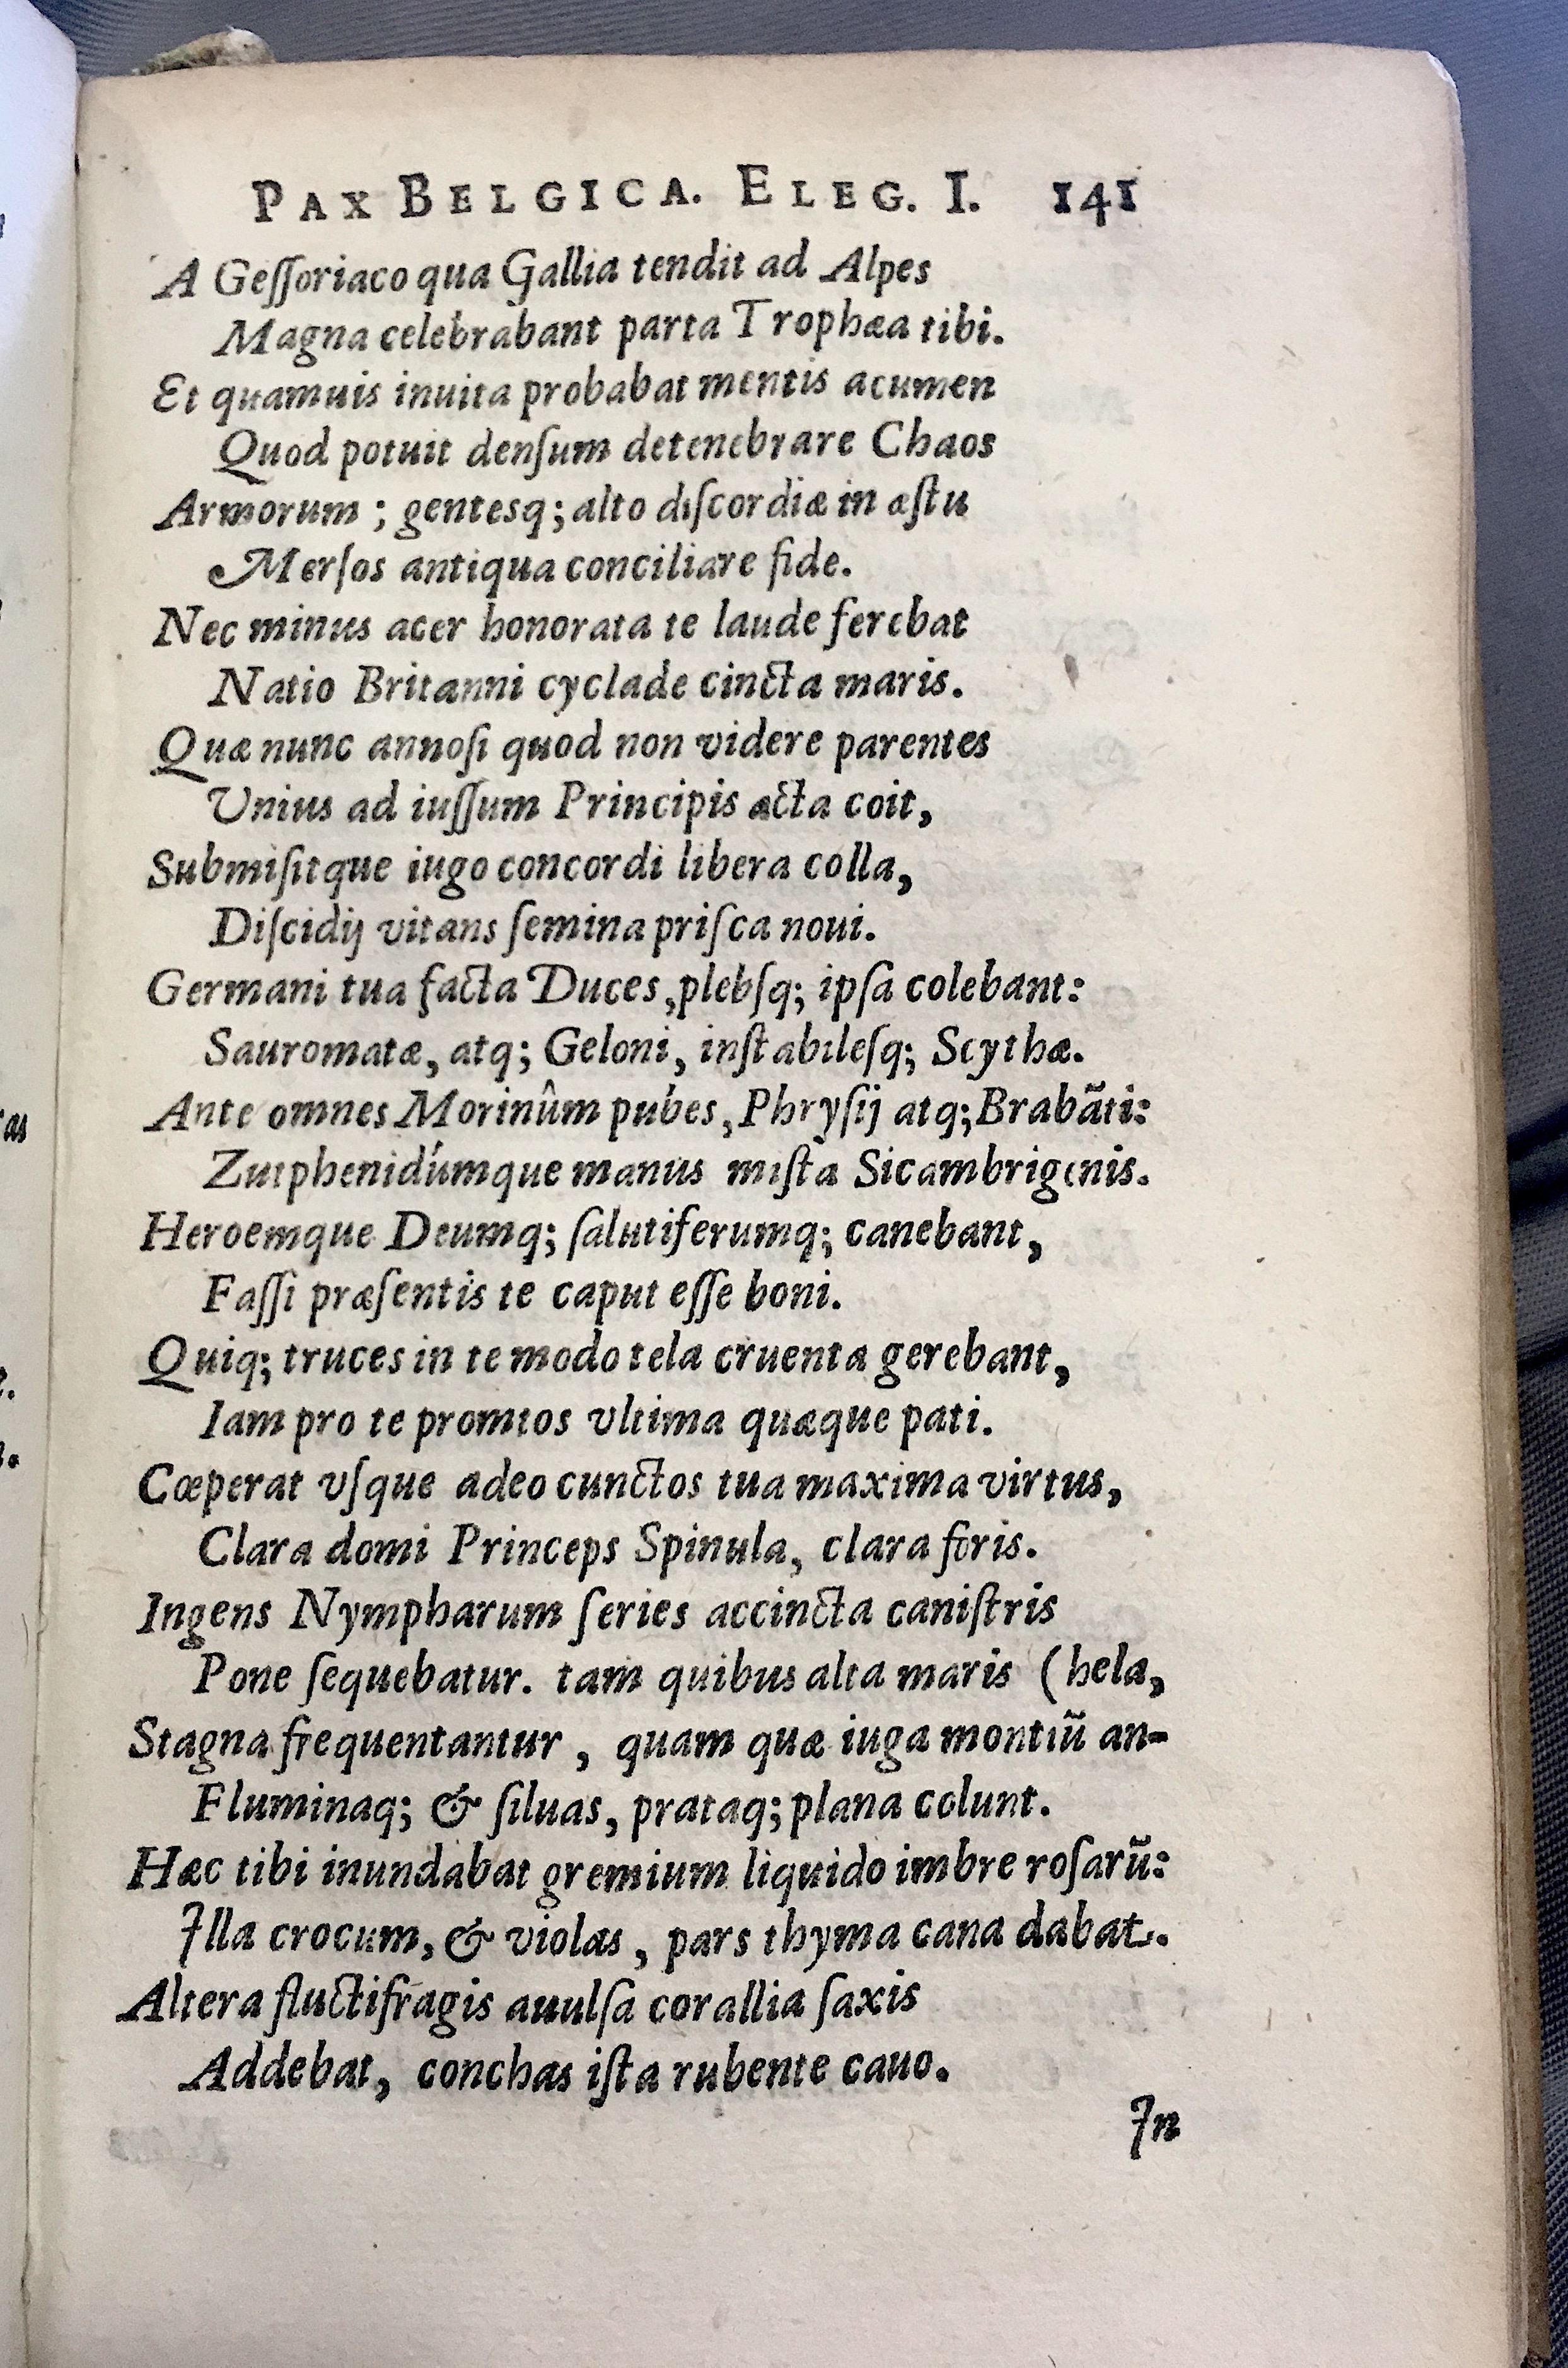 PAX BELGICA. ELEG. I. 141
A Geſſoriaco qua Gallia tendit ad Alpes
Magna celebrabant parta Trophæa tibi.
Et quamuis inuita probabat mentis acumen
Quod potuit denſum detenebrare Chaos
Armorum ; gentesq; alto diſcordiæ in æſtu
Merſos antiqua conciliare fide.
Nec minus acer honorata te laude ferebat
Natio Britanni cyclade cincta maris.
Quæ nunc annoſi quod non videre parentes
Unius ad iuſſum Principis acta coit,
Submiſitque iugo concordi libera colla,
Diſcidij vitans ſemina priſca noui.
Germani tua facta Duces, plebſq; ipſa colebant:
Sauromatæ, atq; Geloni, inſtabileſq; Scythæ.
Ante omnes Morinûm pubes, Phryſij atq; Brabãti:
Zutphenidúmque manus miſta Sicambrigenis.
Heroemque Deumq; ſalutiferumq; canebant,
Faſſi præſentis te caput eſſe boni.
Quiq; truces in te modo tela cruenta gerebant,
Iam pro te promtos vltima quæque pati.
Cœperat vſque adeo cunctos tua maxima virtus,
Clara domi Princeps Spinula, clara foris.
Ingens Nympharum ſeries accincta caniſtris
Pone ſequebatur. tam quibus alta maris (hela,
Stagna frequentantur , quam quæ iuga montiũ an-
Fluminaq; & ſiluas, prataq; plana colunt.
Hæc tibi inundabat gremium liquido imbre roſarũ:
Illa crocum, & violas , pars thyma cana dabat.
Altera fluctifragis auulſa corallia ſaxis
Addebat, conchas iſta rubente cauo.
In